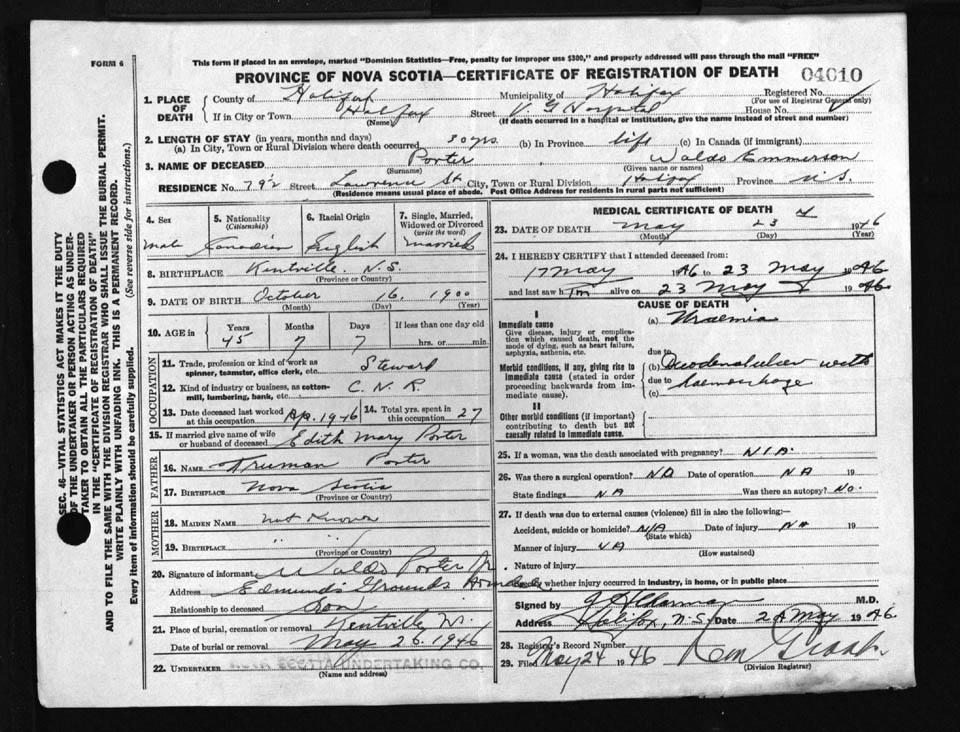 FORM 6
This form if placed in an envelope, marked "Dominion Statistics—Free, penalty for improper use $300," and properly addressed will pass through the mail "FREE"
PROVINCE OF NOVA SCOTIA—CERTIFICATE OF REGISTRATION OF DEATH 04010
1. PLACE OF DEATH
County of Halifax Municipality of Halifax Registered No.
(For use of Registrar General only)
If in City or Town Halifax Street V. G Hospital House No.
(Name) (If death occurred in a hospital or institution, give the name instead of street and number)
2. LENGTH OF STAY (in years, months and days)
(a) In City, Town or Rural Division where death occurred 30 yrs. (b) In Province life (c) In Canada (if immigrant)
3. NAME OF DECEASED Porter Waldo Emmerson
(Surname) (Given name or names)
RESIDENCE No. 79½ Street Lawrence St City, Town or Rural Division Halifax Province N.S.
(Residence means usual place of abode. Post Office Address for residents in rural parts not sufficient)
4. Sex male
5. Nationality (Citizenship) Canadian
6. Racial Origin English
7. Single, Married, Widowed or Divorced (write the word) married
8. BIRTHPLACE Kentville. N.S.
(Province or Country)
9. DATE OF BIRTH October 16. 1900
(Month) (Day) (Year)
10. AGE in Years Months Days If less than one day old
45 7 7 hrs. or min.
OCCUPATION
11. Trade, profession or kind of work as spinner, teamster, office clerk, etc. Steward
12. Kind of industry or business, as cotton-mill, lumbering, bank, etc. C. N. R.
13. Date deceased last worked at this occupation Ap. 1946
14. Total yrs. spent in this occupation 27
15. If married give name of wife or husband of deceased Edith Mary Porter
FATHER
16. NAME Truman Porter
17. BIRTHPLACE Nova Scotia
(Province or Country)
MOTHER
18. MAIDEN NAME not Known
19. BIRTHPLACE " "
(Province or Country)
20. Signature of informant Waldo Porter Jr
Address Edmunds Grounds
Relationship to deceased Son
21. Place of burial, cremation or removal Kentville N.S.
Date of burial or removal May 26. 1946
22. UNDERTAKER NOVA SCOTIA UNDERTAKING CO.
(Name and address)
MEDICAL CERTIFICATE OF DEATH
23. DATE OF DEATH May 23 1946
(Month) (Day) (Year)
24. I HEREBY CERTIFY that I attended deceased from:
17 May 1946 to 23 May 1946
and last saw him alive on 23 May 1946
CAUSE OF DEATH
I
Immediate cause (a) Uraemia
Give disease, injury or complication which caused death, not the mode of dying, such as heart failure, asphyxia, asthenia, etc.
due to
Morbid conditions, if any, giving rise to immediate cause (stated in order proceeding backwards from immediate cause).
(b) Duodenal ulcer with
due to haemorrhage
(c)
II
Other morbid conditions (if important) contributing to death but not causally related to immediate cause.
25. If a woman, was the death associated with pregnancy? N/A.
26. Was there a surgical operation? NO Date of operation NA 19
State findings NA Was there an autopsy? No.
27. If death was due to external causes (violence) fill in also the following:—
Accident, suicide or homicide? N/A Date of injury NA 19
(State which)
Manner of injury NA
(How sustained)
Nature of injury
whether injury occurred in industry, in home, or in public place
Signed by M.D.
Address Halifax, N.S. Date 24 May 1946
28. Registrar's Record Number
29. Filed May 24 1946
(Division Registrar)
SEC. 46—VITAL STATISTICS ACT MAKES IT THE DUTY
OF THE UNDERTAKER OR PERSON ACTING AS UNDER-
TAKER TO OBTAIN ALL THE PARTICULARS REQUIRED
IN THE "CERTIFICATE OF REGISTRATION OF DEATH"
AND TO FILE THE SAME WITH THE DIVISION REGISTRAR WHO SHALL ISSUE THE BURIAL PERMIT.
WRITE PLAINLY WITH UNFADING INK. THIS IS A PERMANENT RECORD.
Every item of information should be carefully supplied. (See reverse side for instructions.)